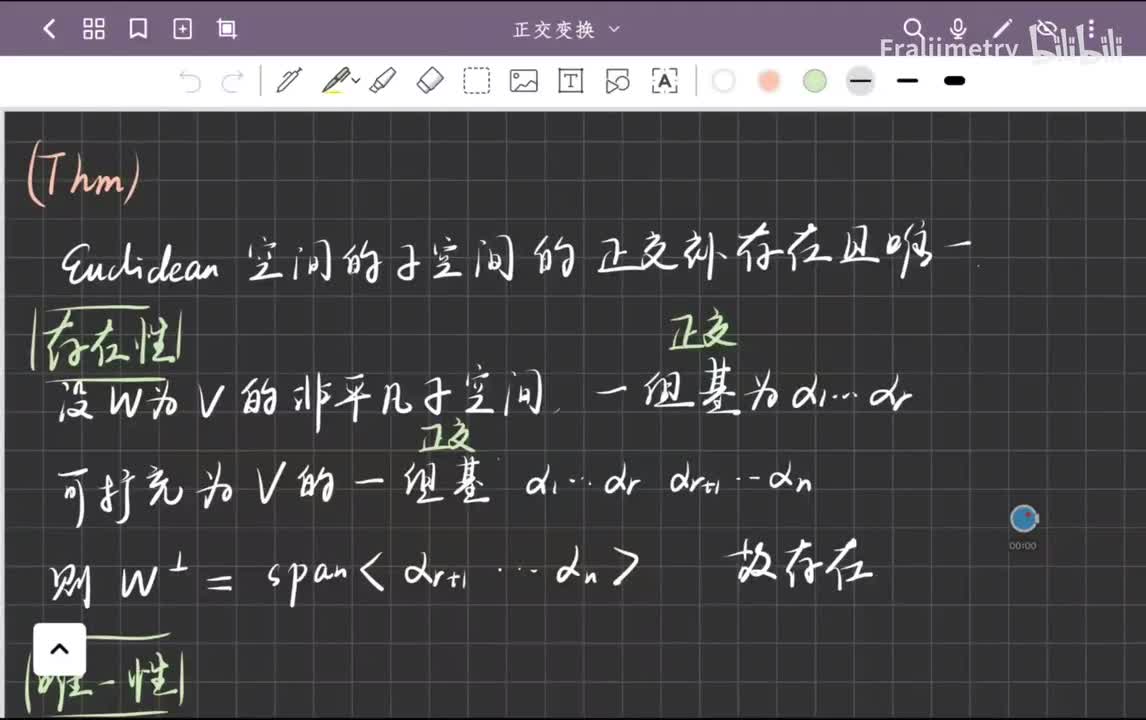 正交变换
Fraliimetry bilibili
T
A
(Thm)
Euclidean 空间的子空间的正交补存在且唯一.
存在性
正交
设W为V的非平凡子空间. 一组基为α₁…αr
正交
可扩充为V的一组基 α₁…αr αr+1…αn
则 W⊥ = span< αr+1 … αn > 故存在
00:00
唯一性